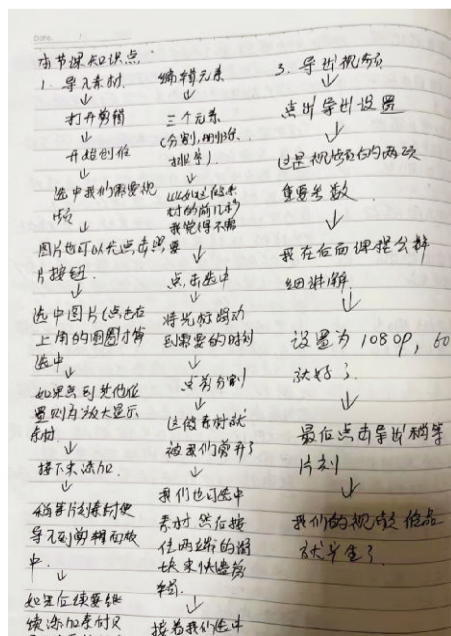 Date. /
本节课知识点
1. 导入素材
↓
打开剪辑
↓
开始创作
↓
选中我们需要视
频 ↓
图片也可以先点击照
片按钮.
↓
选中图片(点击右
上角的圆圈才算
选中
↓
如果点到其他位
置则为放大显示
素材 ↓
接下来添加.
↓
稍等片刻素材便
导入到剪辑面板
中. ↓
如果后续要继
续添加素材只
编辑元素
↓
三个元素
(分割、删除、
排序).
↓
比如这段素
材的前几秒
我觉得不需
要
↓
点击选中
↓
将光标滑动
到需要的时刻
↓
点剪分割
↓
这段素材就
被我们剪开了
↓
我们也可选中
素材 然后按
住两端的滑
块来快速剪
辑. ↓
接着我们选中
3. 导出视频
↓
点击导出设置
↓
这是视频的两项
重要参数.
↓
我在后面课程会详
细讲解
↓
设置为1080p, 60
就好了.
↓
最后点击导出稍等
片刻 ↓
我们的视频作品
就诞生了.